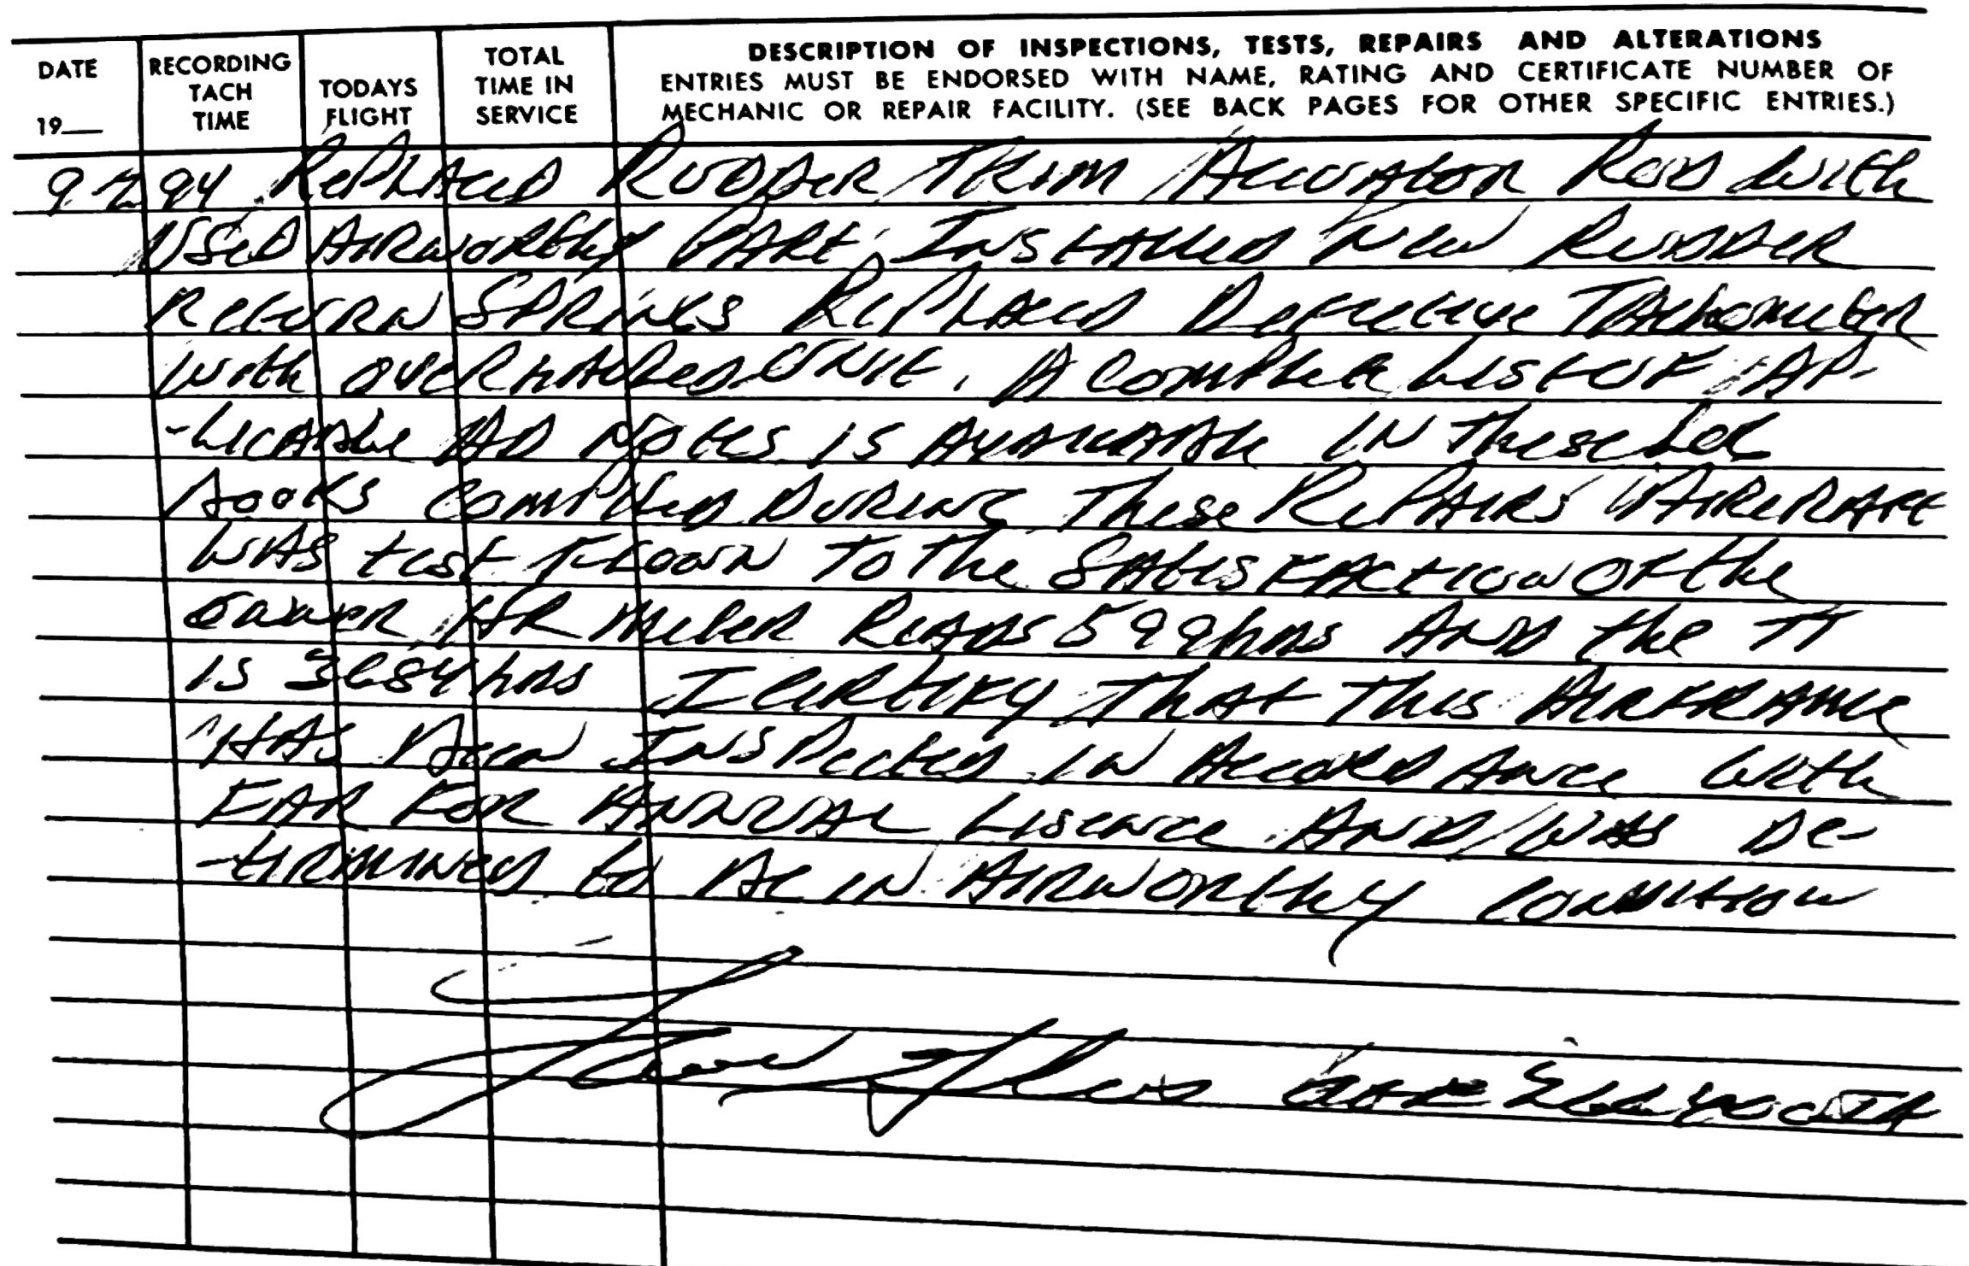 DATE
19__
RECORDING
TACH
TIME
TODAYS
FLIGHT
TOTAL
TIME IN
SERVICE
DESCRIPTION OF INSPECTIONS, TESTS, REPAIRS AND ALTERATIONS
ENTRIES MUST BE ENDORSED WITH NAME, RATING AND CERTIFICATE NUMBER OF
MECHANIC OR REPAIR FACILITY. (SEE BACK PAGES FOR OTHER SPECIFIC ENTRIES.)
94 Replaced Rudder Trim Actuator Rod with
Used Airworthy Part Installed New Rudder
Return Springs Replaced Defective Tachometer
with overhauled unit. A complete List of AP-
-licable AD Notes is available in these Log
Books compiled During These Repairs Aircraft
Was test flown To the Satisfaction of the
owner HR meter Reads 599hrs And the TT
is 3684hrs I certify That This Airframe
Has Been Inspected in Accordance with
FAR For Annual Lisence And Was De-
-termined to Be in Airworthy Condition